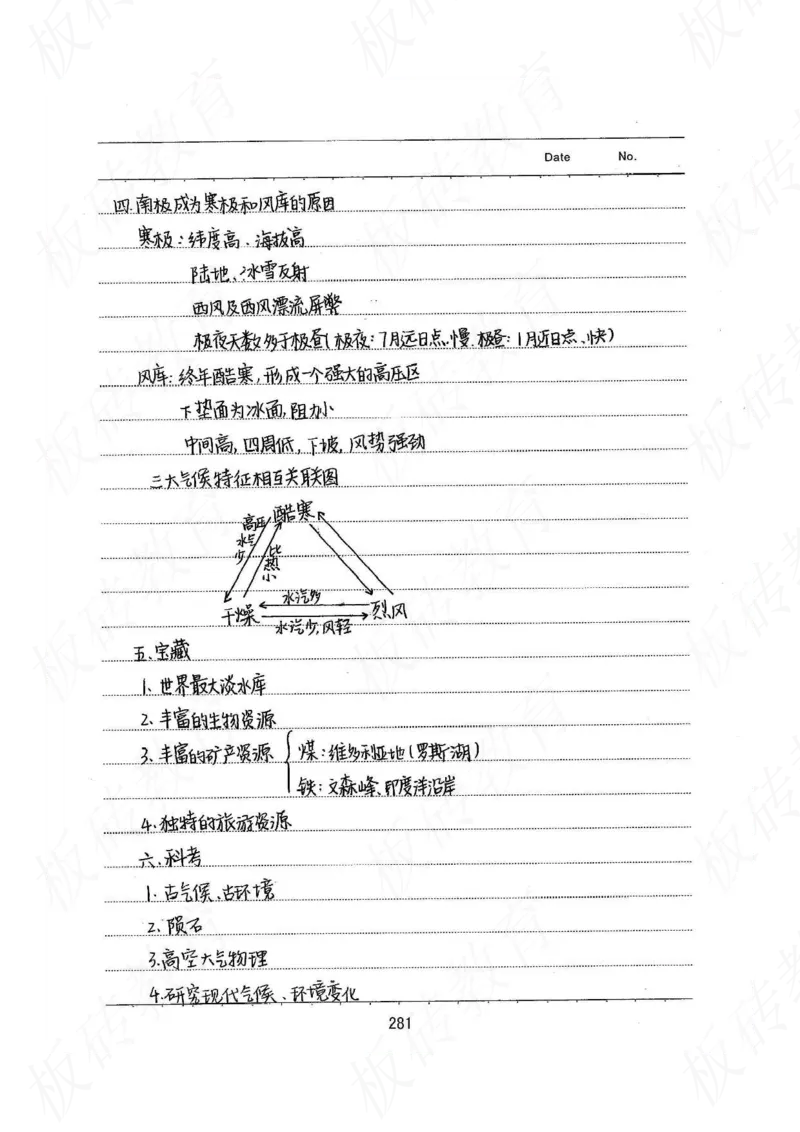 Date No.
四.南极成为寒极和风库的原因
寒极:纬度高、海拔高
陆地、冰雪反射
西风及西风漂流屏弊
极夜天数多于极昼(极夜:7月远日点、慢.极昼:1月近日点、快)
风库:终年酷寒,形成一个强大的高压区
下垫面为冰面,阻力小
中间高,四周低,下坡,风势强劲
三大气候特征相互关联图
高压 酷寒
水气少
比热小
水汽多
干燥 烈风
水汽少,风轻
五、宝藏
1.世界最大淡水库
2.丰富的生物资源
3.丰富的矿产资源 煤:维多利亚地(罗斯湖)
铁:文森峰、印度洋沿岸
4.独特的旅游资源
六、科考
1.古气候、古环境
2.陨石
3.高空大气物理
4.研究现代气候、环境变化
281
板砖教育